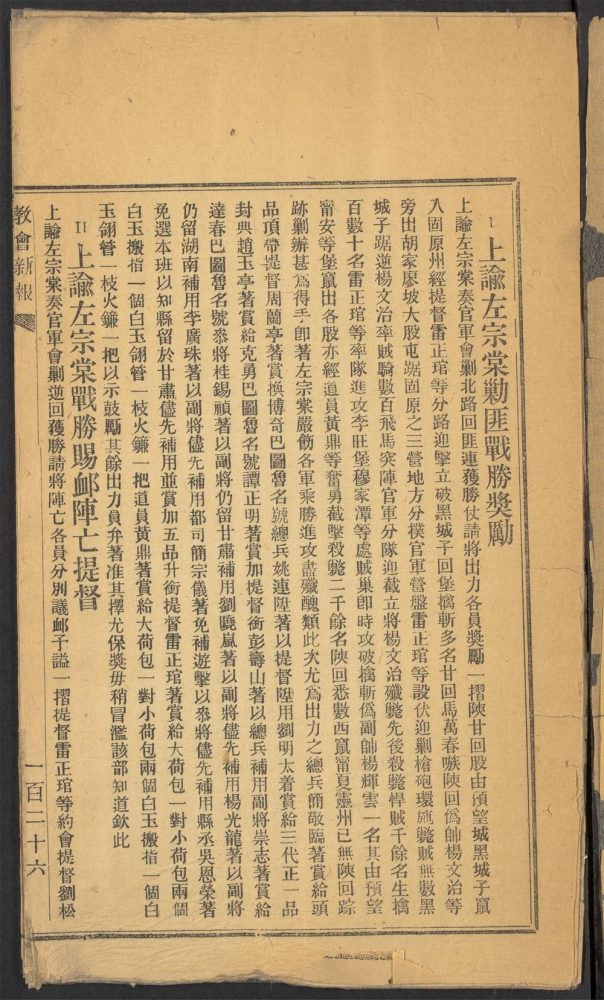 I 上諭左宗棠勦匪戰勝獎勵
上諭左宗棠奏官軍會剿北路回匪連獲勝仗請將出力各員獎勵一摺陝甘回股由預望城黑城子竄
入固原州經提督雷正琯等分路迎擊立破黑城子回堡擒斬多名甘回馬萬春嗾陝回僞帥楊文治等
旁出胡家廖坡大股屯踞固原之三營地方分撲官軍營盤雷正琯等設伏迎剿槍砲環施斃賊無數黑
城子踞逆楊文治率賊騎數百飛馬突陣官軍分隊迎截立將楊文治殲斃先後殺斃悍賊千餘名生擒
百數十名雷正琯等率隊進攻李旺堡穆家潭等處賊巢卽時攻破擒斬僞副帥楊輝雲一名其由預望
甯安等堡竄出各股亦經道員黃鼎等奮勇截擊殺斃二千餘名陝回悉數西竄甯夏靈州已無陝回踪
跡剿辦甚爲得手卽著左宗棠嚴飭各軍乘勝進攻盡殲醜類此次尤爲出力之總兵簡敬臨著賞給頭
品頂帶提督周蘭亭著賞換博奇巴圖魯名號總兵姚連陞著以提督陞用劉明太着賞給三代正一品
封典趙玉亭著賞給克勇巴圖魯名號譚正明著賞加提督銜彭壽山著以總兵補用副將崇志著賞給
達春巴圖魯名號叅將桂錫禎著以副將仍留甘肅補用劉曉嵐著以副將儘先補用楊光龍著以副將
仍留湖南補用李廣珠著以副將儘先補用都司簡宗儀著免補遊擊以叅將儘先補用縣丞吳恩榮著
免選本班以知縣留於甘肅儘先補用並賞加五品升銜提督雷正琯著賞給大荷包一對小荷包兩個
白玉搬指一個白玉翎管一枝火鐮一把道員黃鼎著賞給大荷包一對小荷包兩個白玉搬指一個白
玉翎管一枝火鐮一把以示鼓勵其餘出力員弁著准其擇尤保獎毋稍冒濫該部知道欽此
II 上諭左宗棠戰勝賜卹陣亡提督
上諭左宗棠奏官軍會剿逆回獲勝請將陣亡各員分別議卹予謚一摺提督雷正琯等約會提督劉松
教會新報
一百二十六